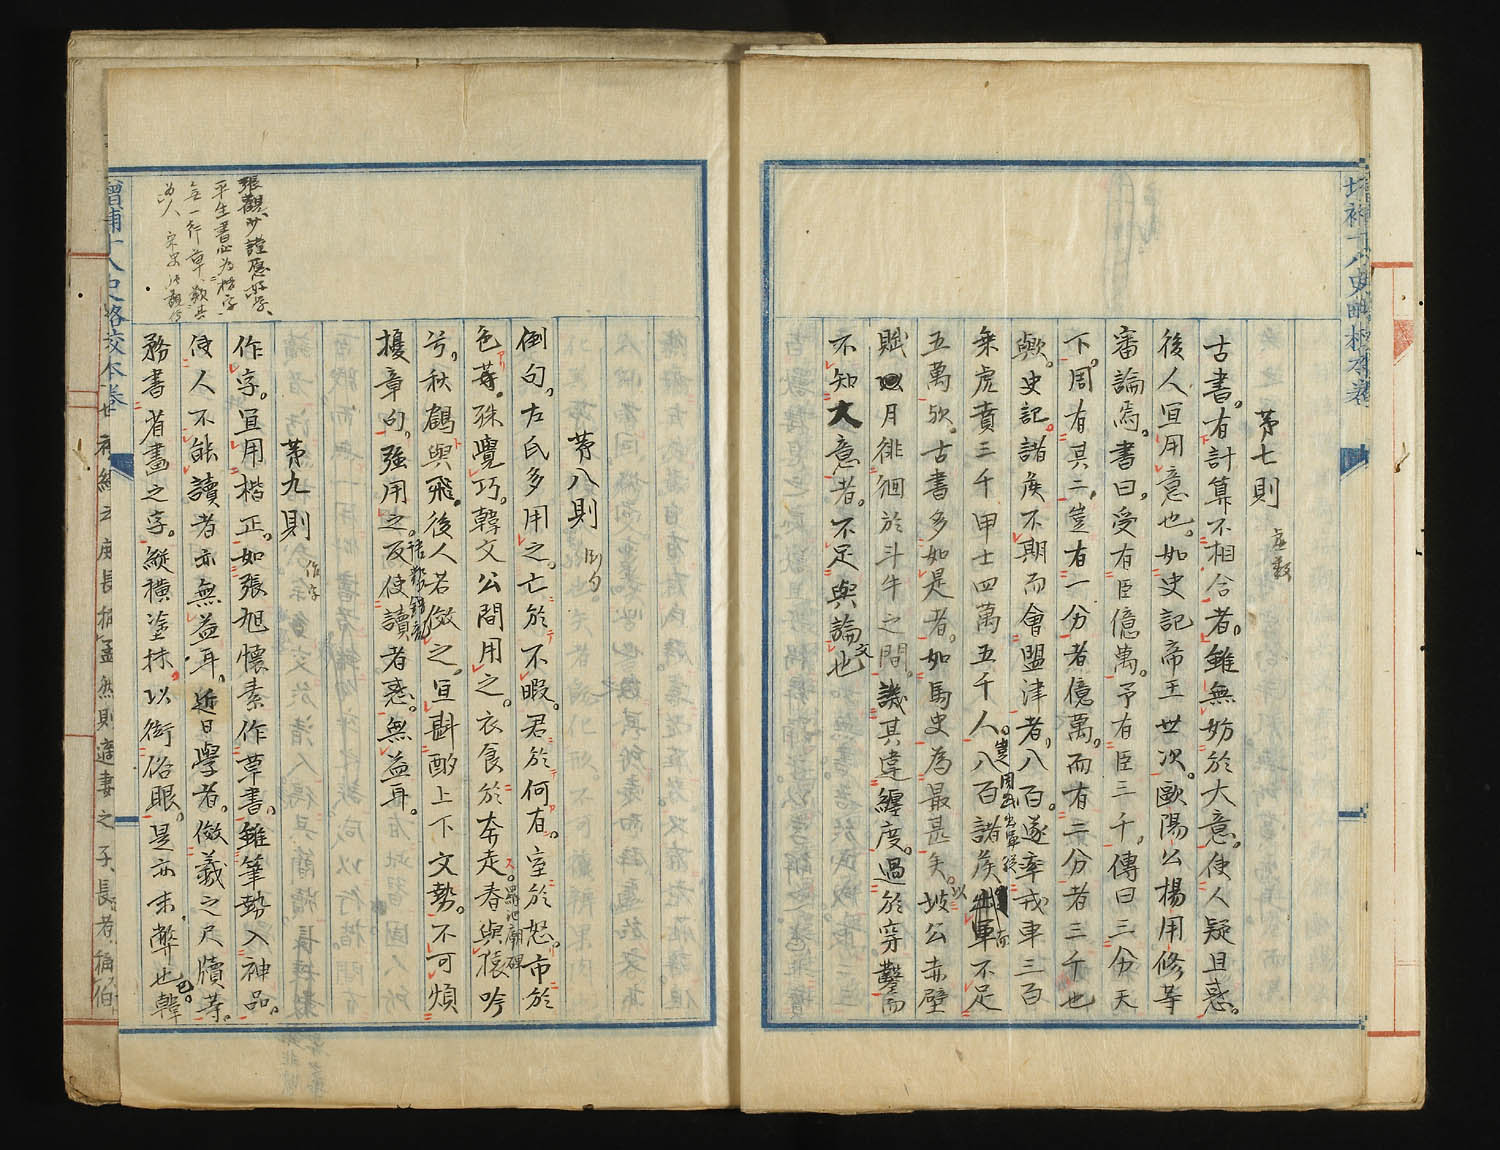 第七則
虚數
古書。有計算不相合者。雖無妨於大意。使人疑且惑。
後人宜用意也。如史記帝王世次。歐陽公楊用修等
審論焉。書曰。受有臣億萬。予有臣三千。傳曰三分天
下。周有其二。豈有一分者億萬。而有二分者三千也
歟。史記。諸侯不期而會盟津者。八百。遂率戎車三百
乗虎賁三千甲士四萬五千人。八百諸侯而不足
五萬歟。古書多如是者。如馬史為最甚矣。坡公赤壁
賦月徘徊於斗牛之間。譏其違纏度。過於穿鑿而
不知大意者。不足與論文也
第八則
倒句
倒句。左氏多用之。亡於不暇。君於何有。室於怒。市於
色等。殊覺巧。韓文公間用之。衣食於奔走。春與猿吟
羅池廟碑
兮。秋鶴與飛。後人若倣之。宜斟酌上下文勢。不可煩
擾章句。強用之。反使讀者惑。無益耳。
第九則
作字
作字。宜用楷正。如張旭懷素作草書。雖筆勢入神品。
使人不能讀者亦無益耳。近日學者。倣羲之尺牘等。
務書省畫之字。縦横塗抹。以衒俗眼。是亦末弊也已。韓
張觀少謹愿好學、
平生書必為楷字、
無一行草、類其
為人
增補十八史略校本卷
庶長稱孟然則適妻之子長者稱伯